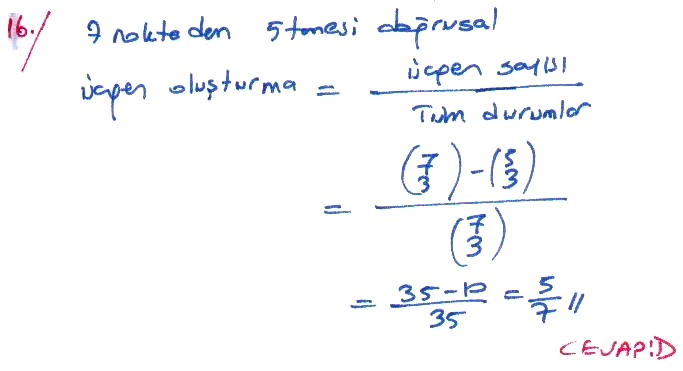 16./ 7 noktadan 5 tanesi doğrusal
üçgen oluşturma = üçgen sayısı / Tüm durumlar
= ((7 3) - (5 3)) / (7 3)
= (35-10) / 35 = 5/7 //
CEVAP:D